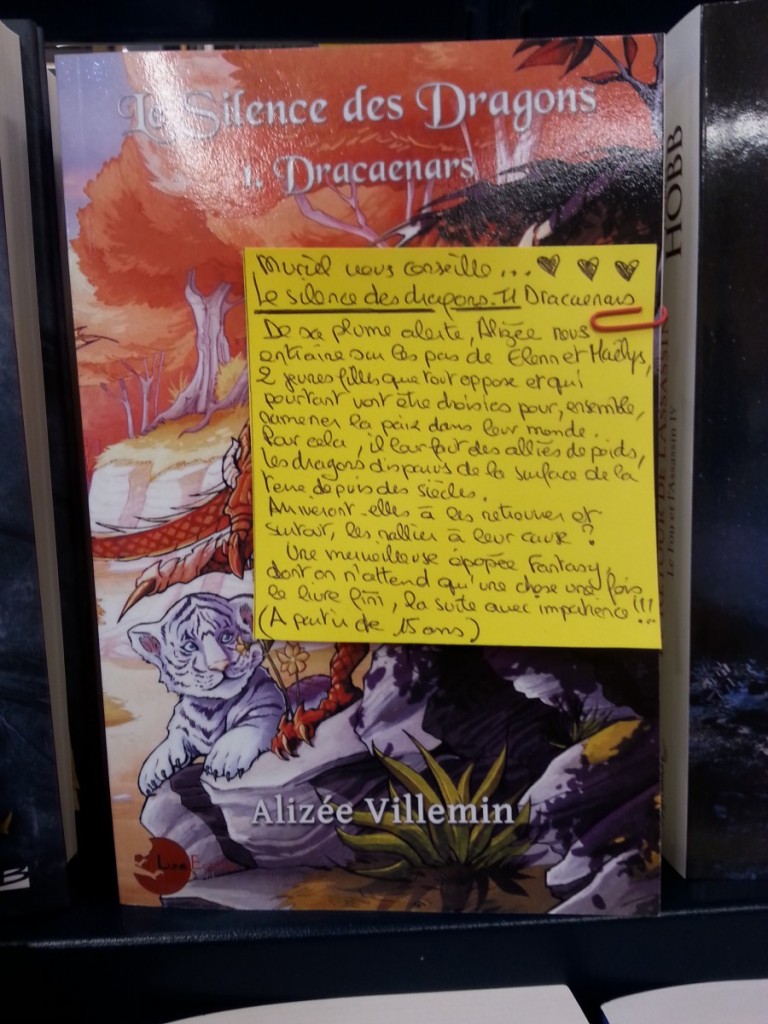 Le Silence des Dragons
1. Dracaenars
Muriel vous conseille...
Le silence des dragons. T1 Dracaenars
De sa plume alerte, Alizée nous
entraîne sur les pas de Elonn et Maëlys,
2 jeunes filles que tout oppose et qui
pourtant vont être choisies pour, ensemble,
ramener la paix dans leur monde.
Pour cela, il leur faut des alliés de poids,
les dragons disparus de la surface de la
terre depuis des siècles.
Arriveront-elles à les retrouver et
surtout, les rallier à leur cause ?
Une merveilleuse épopée Fantasy,
dont on n'attend qu'une chose une fois
le livre fini, la suite avec impatience !!!
(A partir de 15 ans)
Alizée Villemin
HOBB
LE RETOUR DE L'ASSASSIN
Le Fou et l'Assassin IV